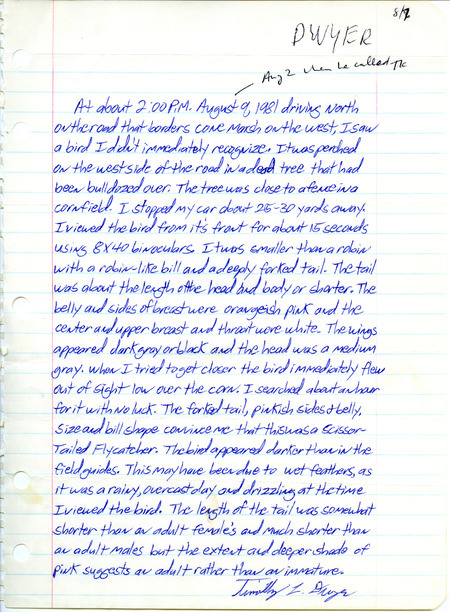 8/2
DWYER
Aug 2 when he called TK
At about 2:00 P.M. August 9, 1981 driving North
on the road that borders Cone Marsh on the west, I saw
a bird I didn't immediately recognize. It was perched
on the west side of the road in a dead tree that had
been bulldozed over. The tree was close to a fence in a
cornfield. I stopped my car about 25-30 yards away.
I viewed the bird from its front for about 15 seconds
using 8X40 binoculars. It was smaller than a robin
with a robin-like bill and a deeply forked tail. The tail
was about the length of the head and body or shorter. The
belly and sides of breast were orangeish pink and the
center and upper breast and throat were white. The wings
appeared dark gray or black and the head was a medium
gray. When I tried to get closer the bird immediately flew
out of sight low over the corn. I searched about an hour
for it with no luck. The forked tail, pinkish sides & belly,
size and bill shape convince me that this was a Scissor-
Tailed Flycatcher. The bird appeared darker than in the
field guides. This may have been due to wet feathers, as
it was a rainy, overcast day and drizzling at the time
I viewed the bird. The length of the tail was somewhat
shorter than an adult female's and much shorter than
an adult males but the extent and deeper shade of
pink suggests an adult rather than an immature.
Timothy L. Dwyer